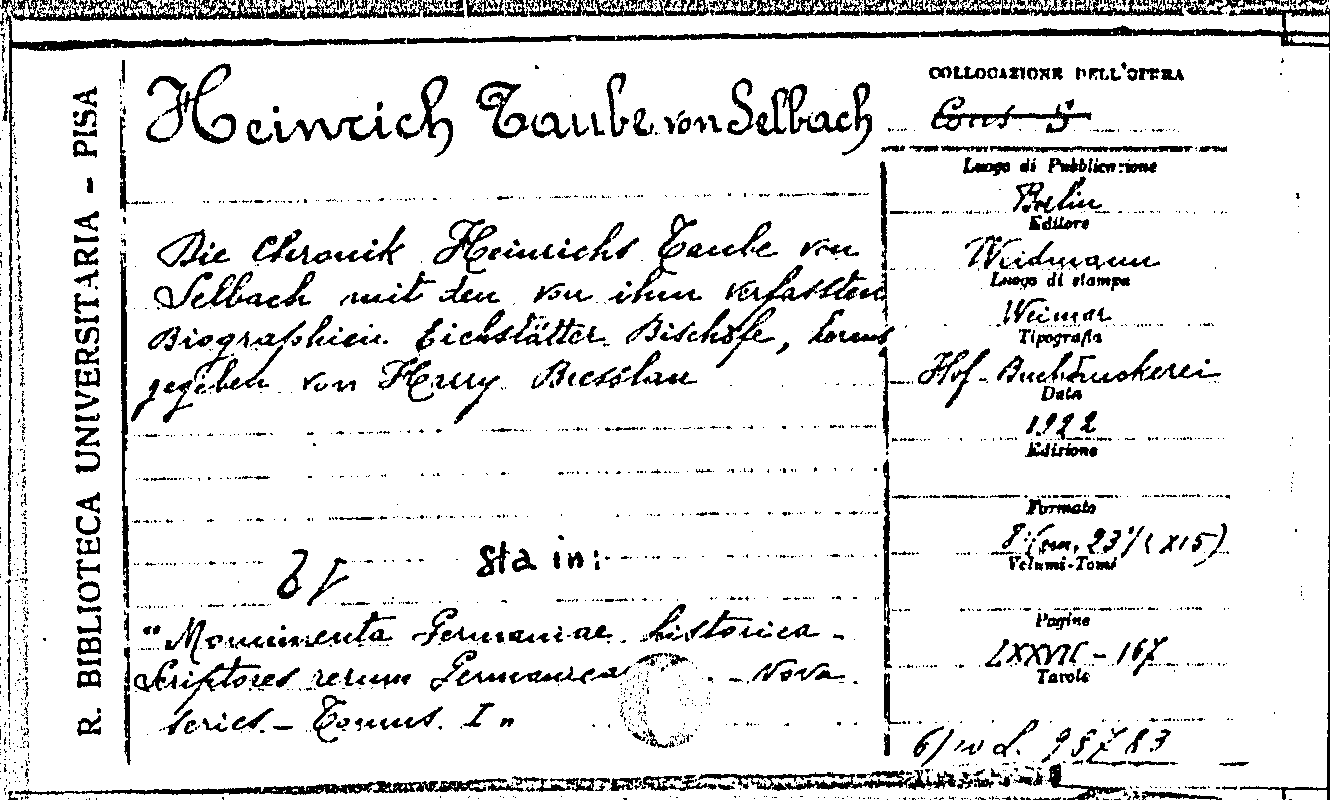 R. BIBLIOTECA UNIVERSITARIA - PISA
Heinrich Taube von Selbach
Die Chronik Heinrichs Taube von
Selbach mit den von ihm verfassten
Biographien Eichstätter Bischöfe, heraus
gegeben von Harry Bresslau
Sta in:
"Monumenta Germaniae historica -
Scriptores rerum Germanica - Nova
series. - Tomus. I"
COLLOCAZIONE DELL'OPERA
Cons 5
Luogo di Pubblicazione
Berlin
Editore
Weidmann
Luogo di stampa
Weimar
Tipografia
Hof-Buchdruckerei
Data
1922
Edizione
Formato
8° (cm. 23½ x 15)
Volumi-Tomi
Pagine
LXXVII - 167
Tavole
98783